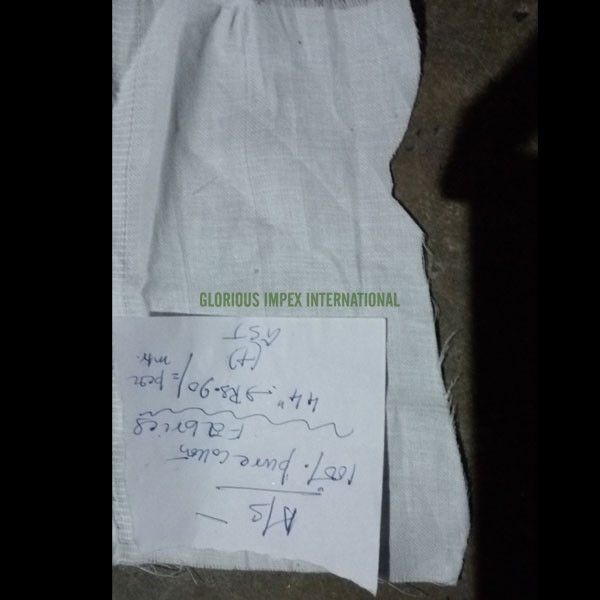 GLORIOUS IMPEX INTERNATIONAL
A/S -
100%. pure cotton
Fabrics
44" → Rs. 90/= per mtr.
(+)
GST